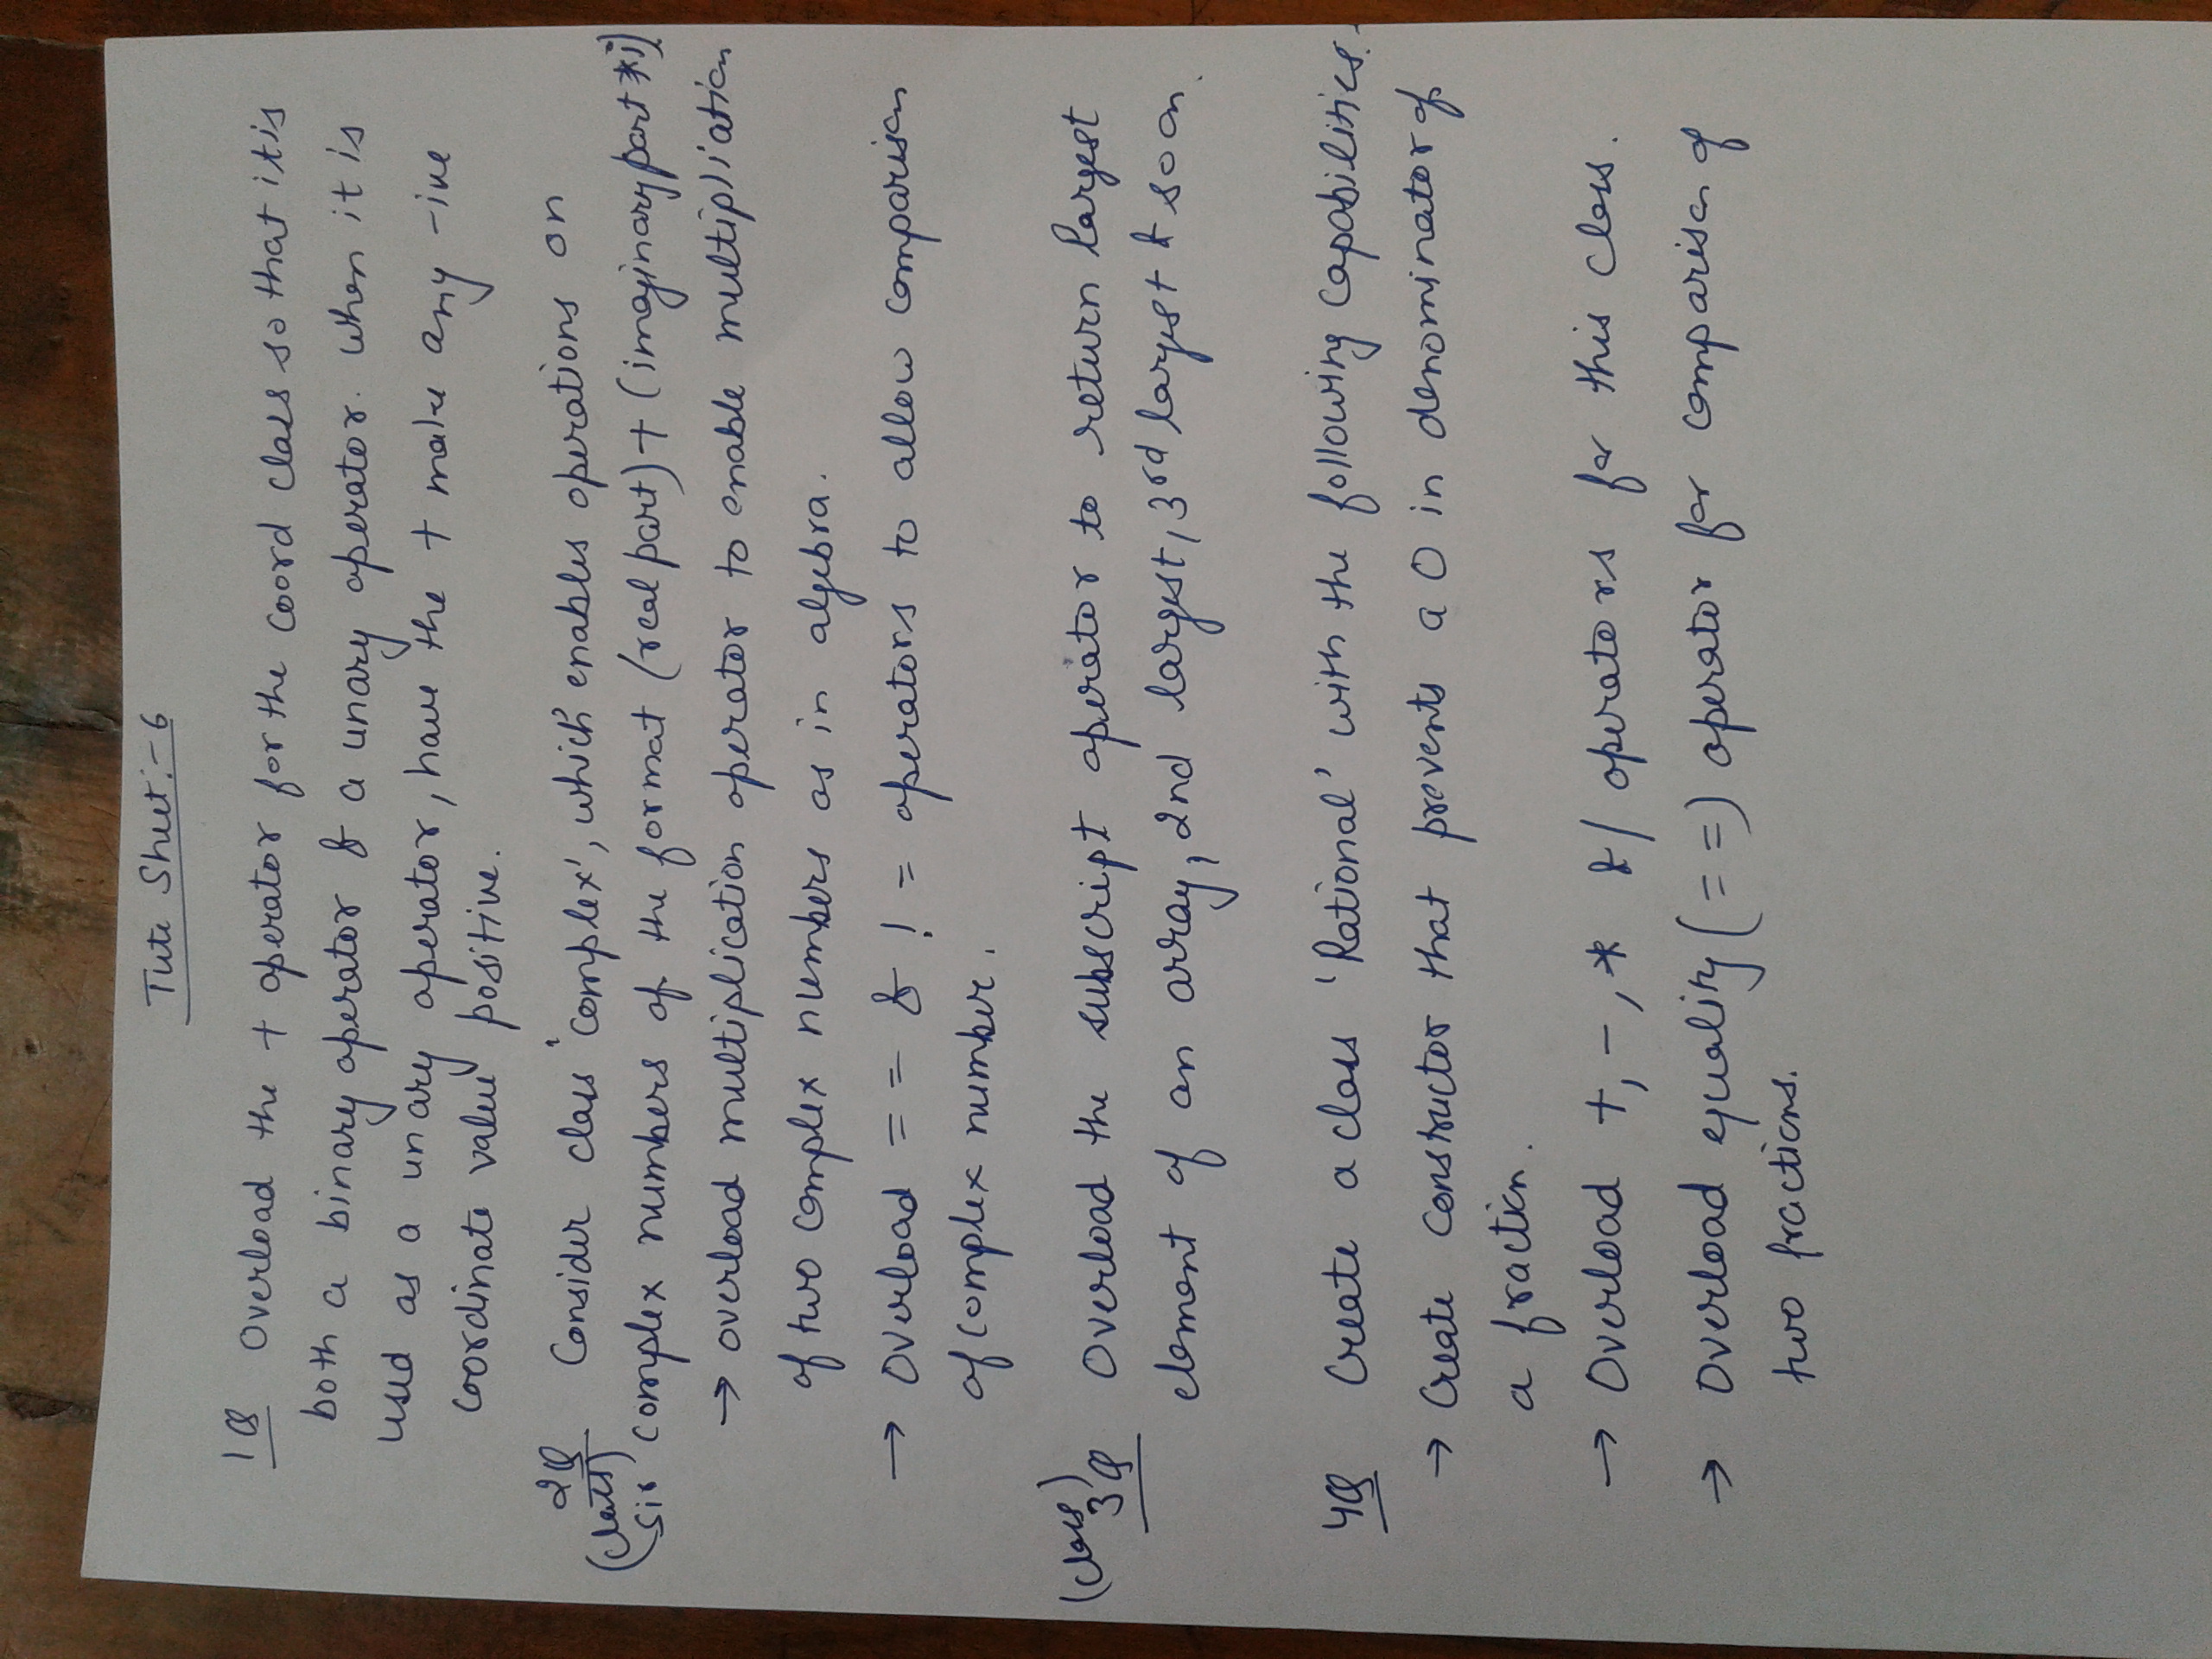 Tute Sheet:-6
1Q Overload the + operator for the coord class so that it is
both a binary operator & a unary operator. When it is
used as a unary operator, have the + make any -ive
coordinate value positive.
2Q Consider class 'complex', which enables operations on
Sir complex numbers of the format (real part) + (imaginary part * i)
→ overload multiplication operator to enable multipliation
of two complex numbers as in algebra.
→ Overload == & != operators to allow comparison
of complex number.
(class)
3Q Overload the subscript operator to return largest
element of an array, 2nd largest, 3rd largest & so on.
4Q Create a class 'Rational' with the following capabilities.
→ Create constructor that prevents a 0 in denominator of
a fraction.
→ Overload +, -, * & / operators for this class.
→ Overload equality (==) operator for comparison of
two fractions.